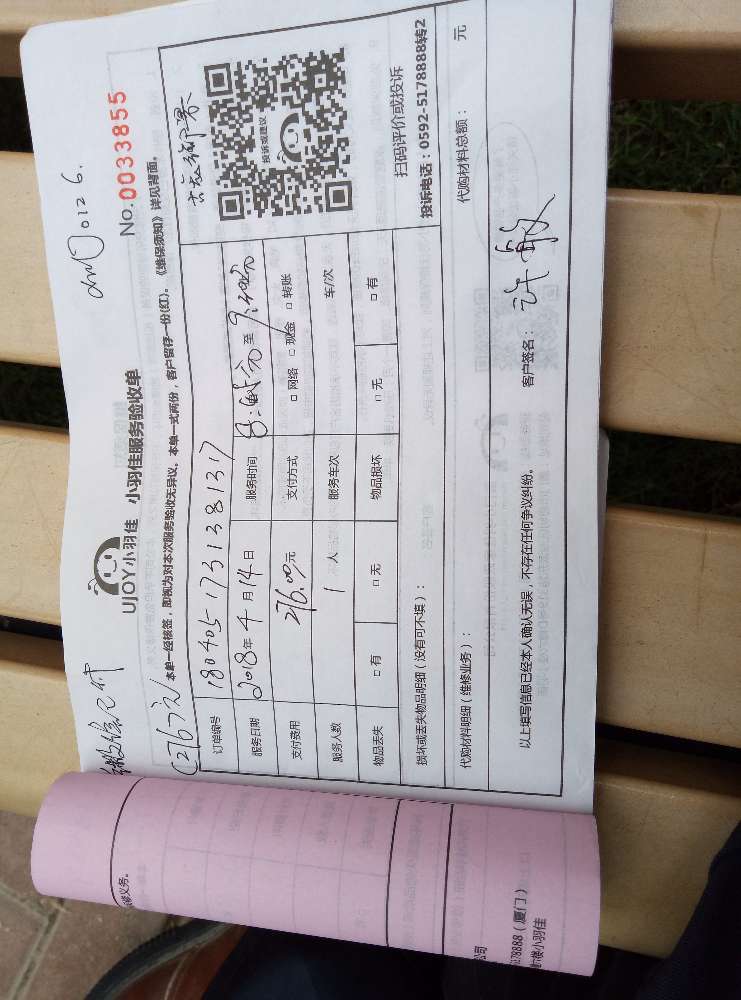 0126.
No.0033855
UjOY小羽佳 小羽佳服务验收单
(276元)
本单一经核签，即视为对本次服务验收无异议。本单一式两份，客户留存一份(红)。《维保须知》详见背面。
订单编号 1804051731381317
服务日期 2018年4月14日 服务时间 至
支付费用 276.00元 支付方式 □ 网络 □ 现金 □ 转账
服务人数 1 人 服务车次 车/次
物品丢失 □ 有 □ 无 物品损坏 □ 无 □ 有
投诉或建议
扫码评价或投诉
投诉电话：0592-5178888转2
损坏或丢失物品明细（没有可不填）：
代购材料明细（维修业务）： 代购材料总额： 元
以上填写信息已经本人确认无误，不存在任何争议纠纷。 客户签名： 许敏
义务。
公司
5178888（厦门）
小羽佳